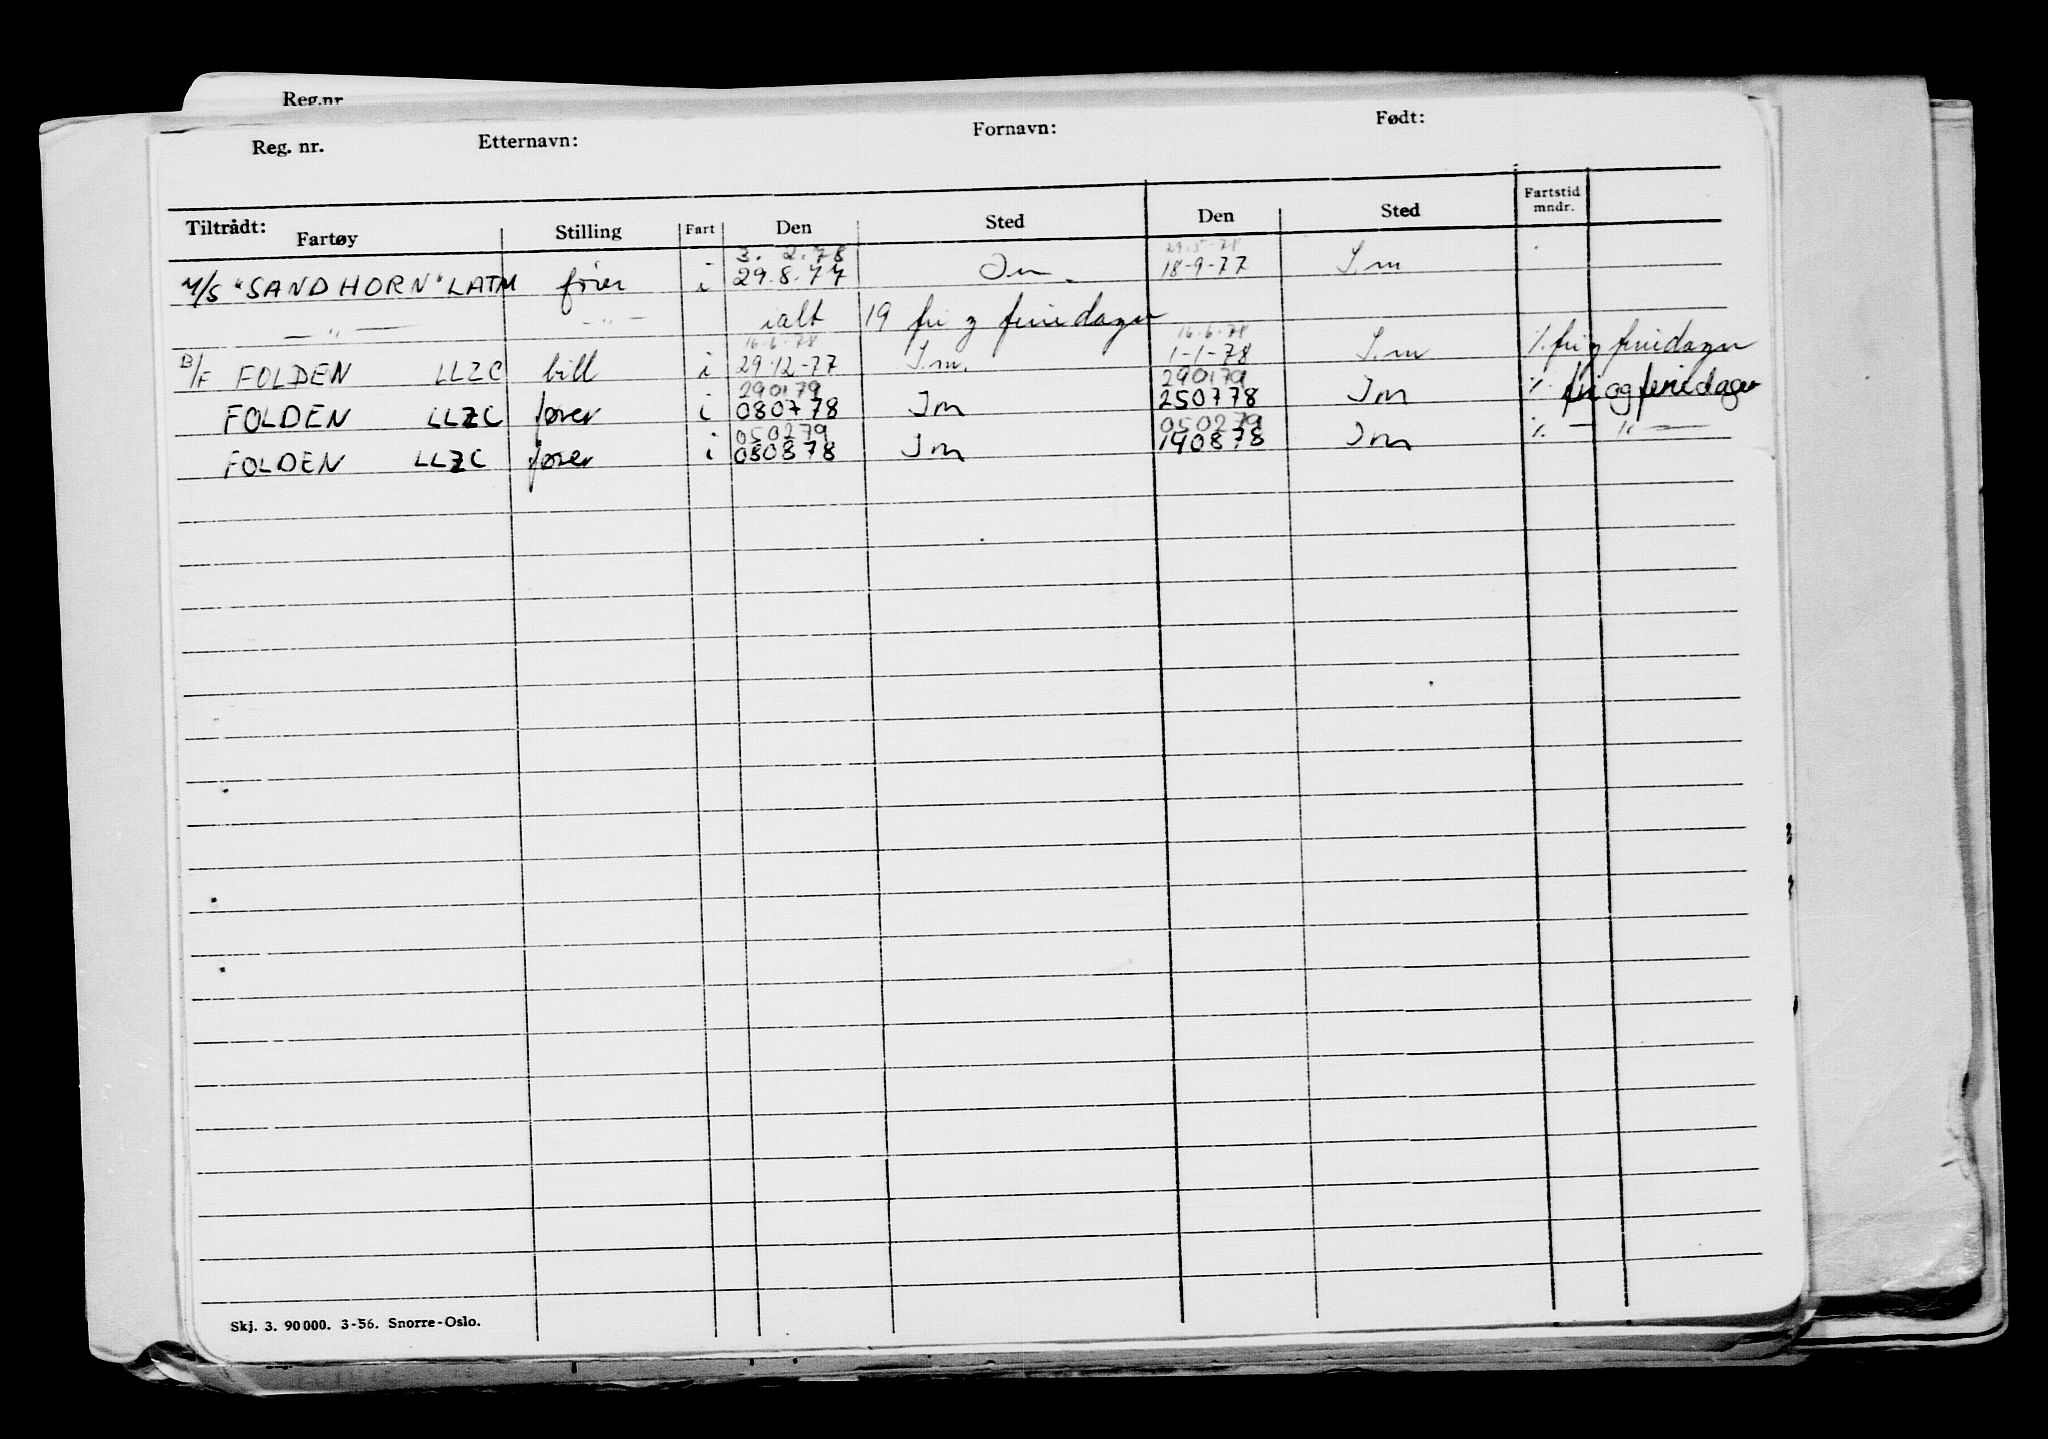 Reg.nr
Reg. nr. Etternavn: Fornavn: Født:
Tiltrådt: Fartøy Stilling Fart Den Sted Den Sted Fartstid mndr.
3. 2.78 29.5-78
M/S "SANDHORN" LATM fører i 29.8.77 Im. 18-9-77 I.m
— " — — " — ialt 19 fri og feriedager
16-6-78 16-6-78
B/F FOLDEN LLZC bill i 29-12-77 I.m. 1-1-78 I.m % fri og feriedager
290179 290179
FOLDEN LLZC fører i 080778 Im 250778 Im % fri og feriedager
050279 050279
FOLDEN LLZC fører i 080878 Im 140878 Im % — " —
Skj. 3. 90 000. 3-56. Snorre-Oslo.